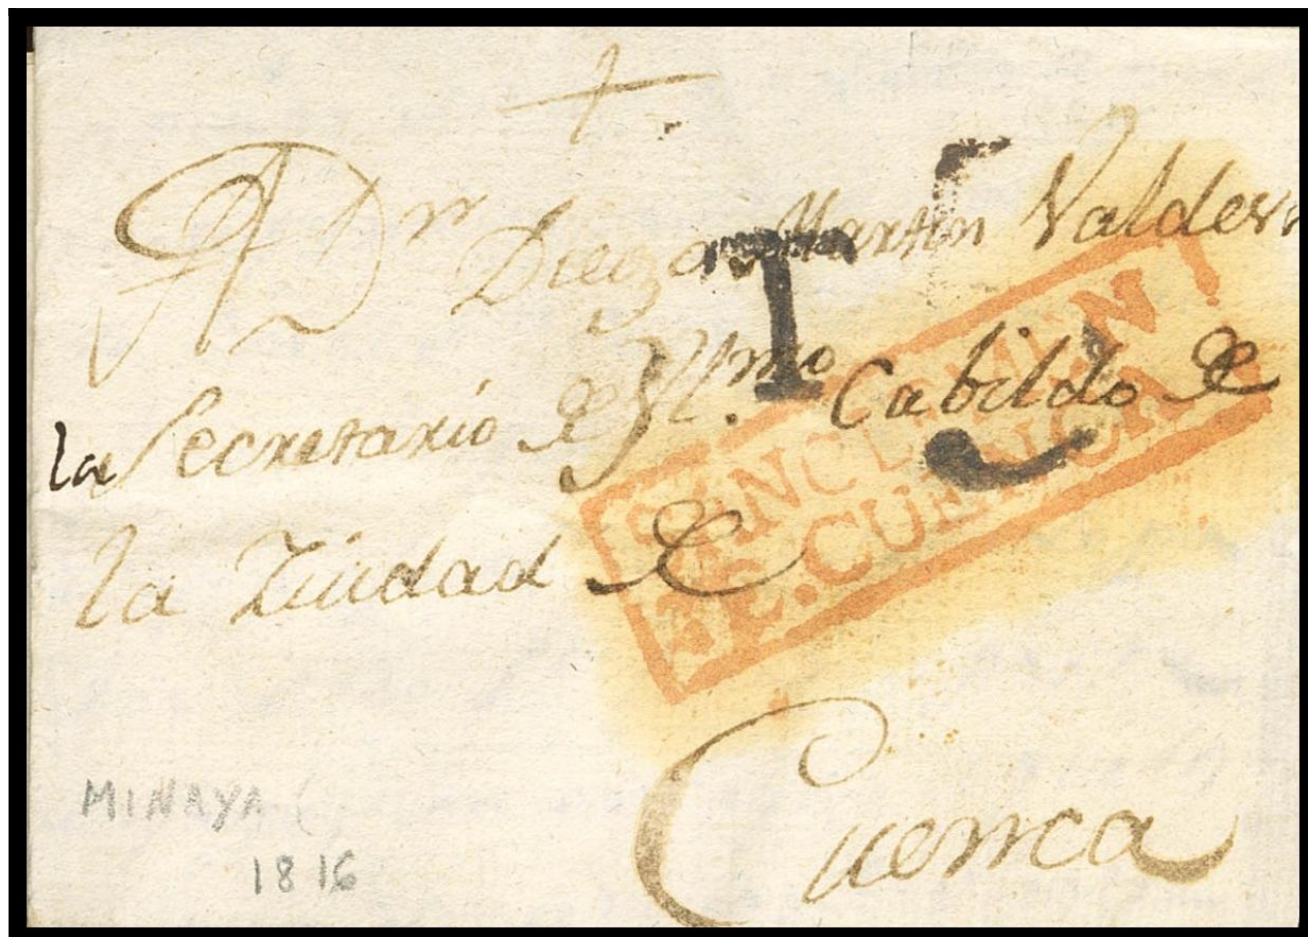 A Dn Diego Martin Valder
la Secretario de Yl.mo Cabildo de
la Ziudad de
Cuenca
E. CUENCA
MINAYA
1816